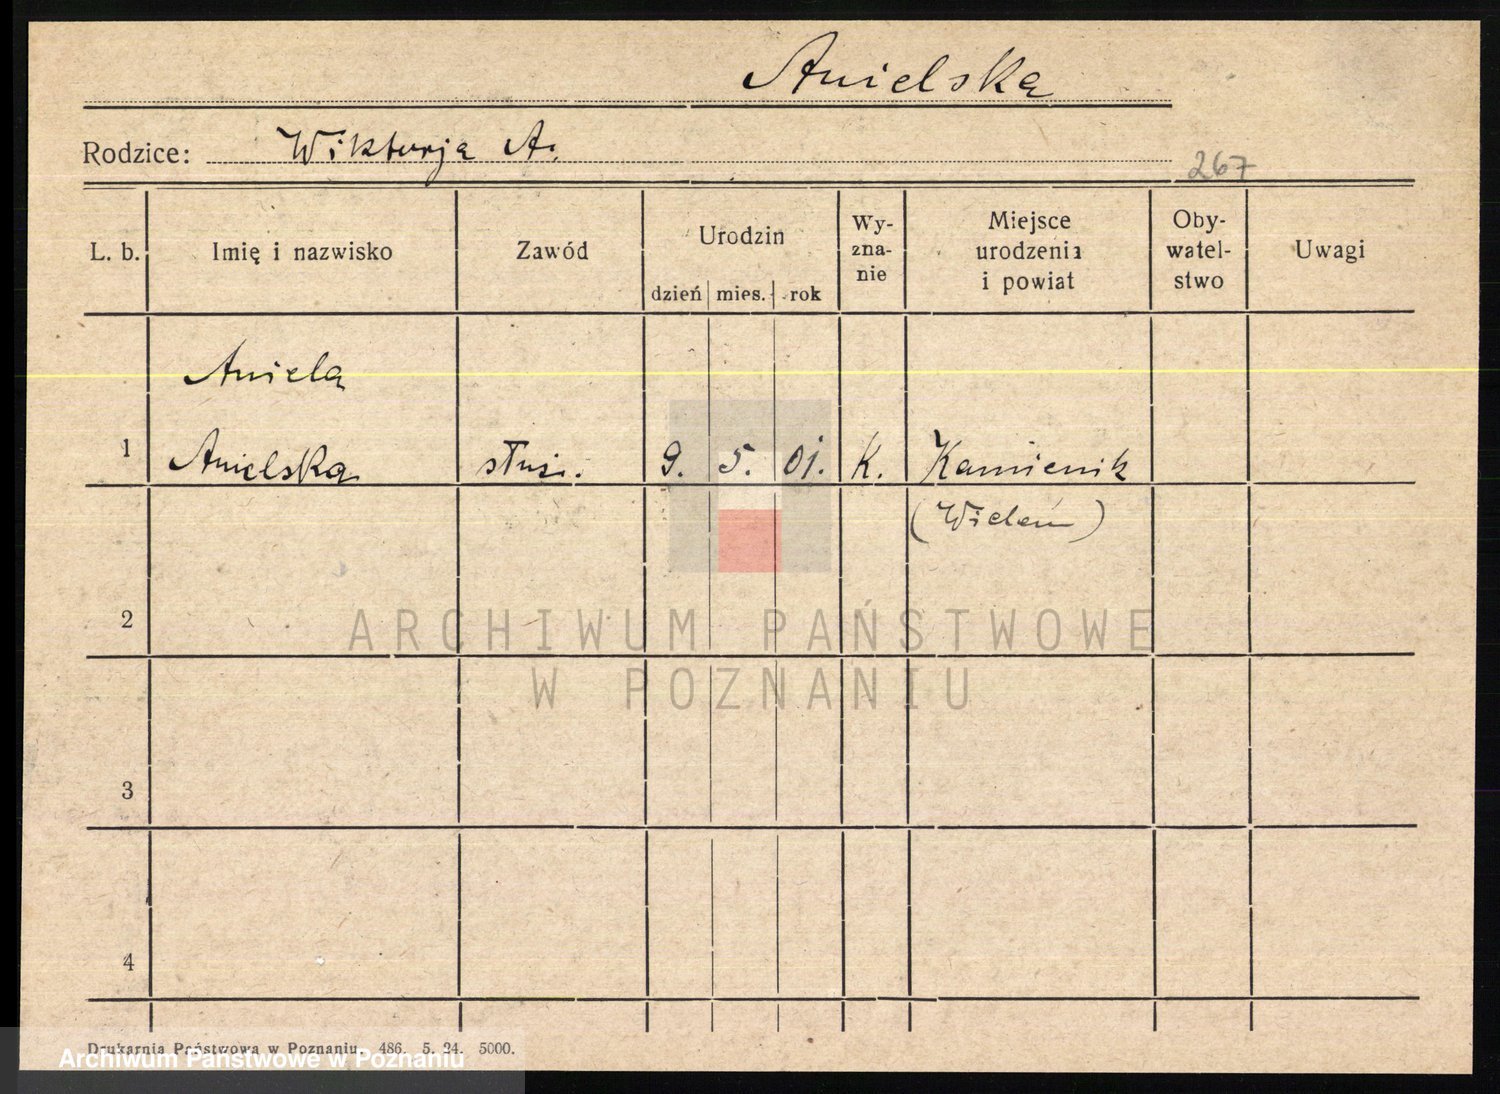 Anielska
Rodzice: Wiktorja A.
267
L. b. Imię i nazwisko Zawód Urodzin dzień mies. rok Wy-zna-nie Miejsce urodzenia i powiat Oby-watel-stwo Uwagi
Aniela
1 Anielska służ. 9. 5. 01. K. Kamiennik
(Wieleń)
2
ARCHIWUM PAŃSTWOWE
W POZNANIU
3
4
Drukarnia Państwowa w Poznaniu. 486. 5. 24. 5000.
Archiwum Państwowe w Poznaniu